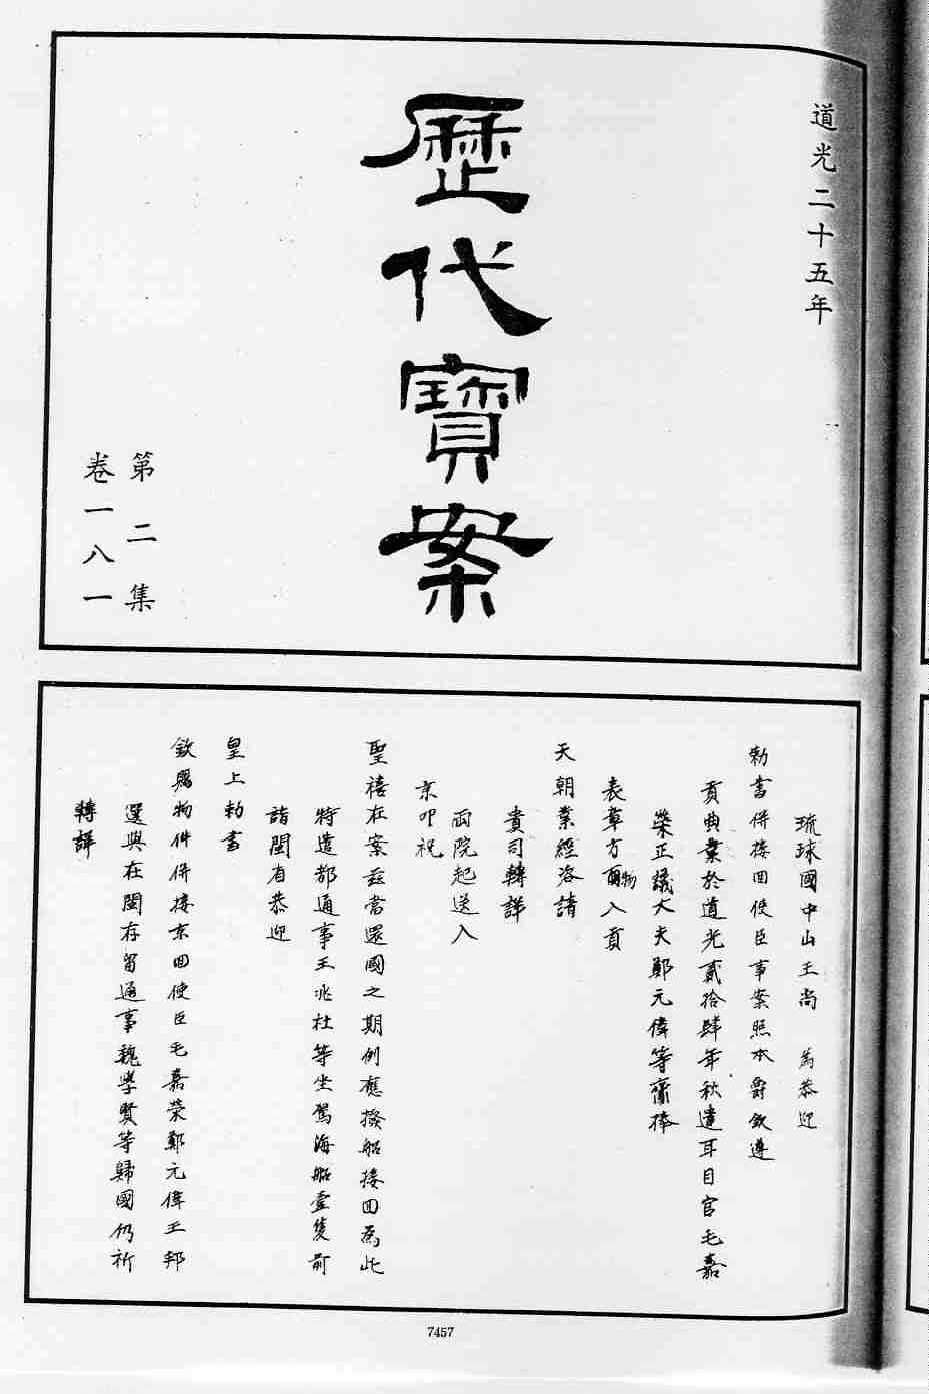 道光二十五年
歷代寶案
第二集
卷一八一
琉球國中山王尚 為恭迎
勅書併接回使臣事案照本爵欽遵
貢典業於道光貳拾肆年秋遣耳目官毛嘉
榮正議大夫鄭元偉等齎捧
表章方物入貢
天朝業經咨請
貴司轉詳
兩院起送入
京叩祝
聖禧在案茲當還國之期例應撥船接回為此
特遣都通事王兆杜等坐駕海船壹隻前
詣閩省恭迎
皇上勅書
欽賜物件併接京回使臣毛嘉榮鄭元偉王邦
選與在閩存留通事魏學賢等歸國仍祈
轉詳
7457